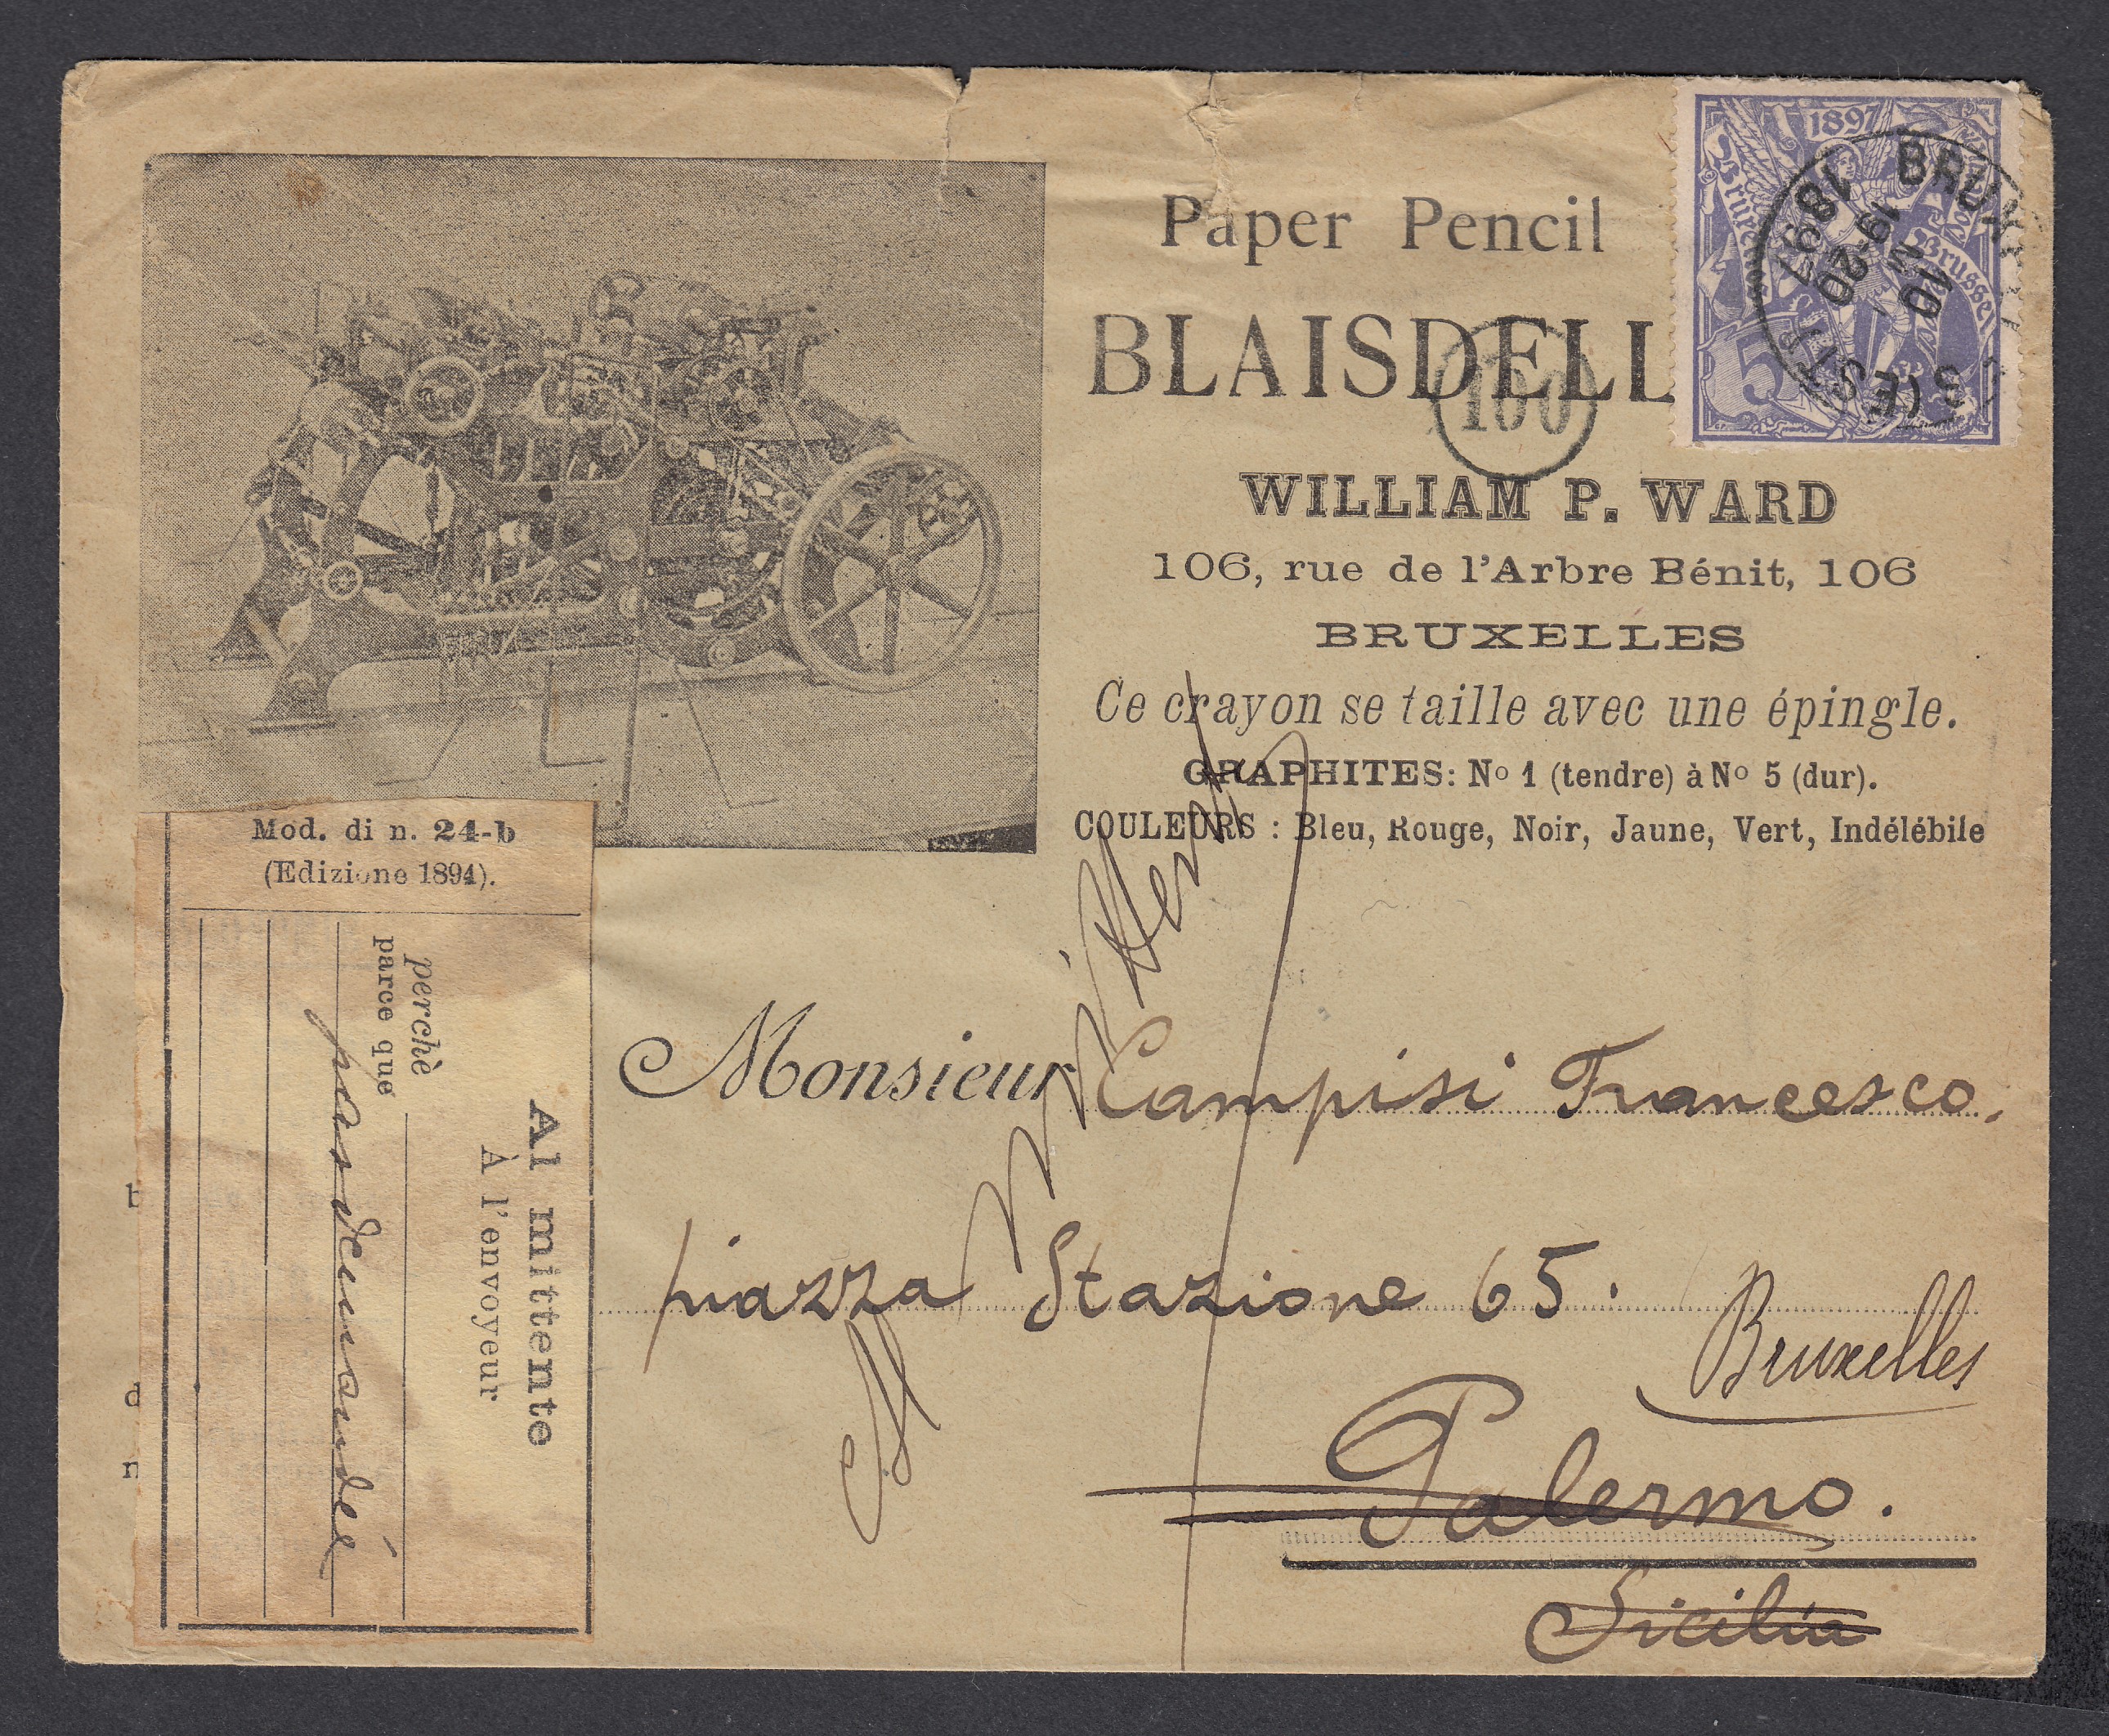 Paper Pencil
BLAISDELL
WILLIAM P. WARD
106, rue de l'Arbre Bénit, 106
BRUXELLES
Ce crayon se taille avec une épingle.
GRAPHITES: No 1 (tendre) à No 5 (dur).
COULEURS : Bleu, Rouge, Noir, Jaune, Vert, Indélébile
1897
Bruxelles
Brussel
5
BRUX
S (EST
10
19-20
1897
100
Mod. di n. 24-b
(Edizione 1894).
Al mittente
À l'envoyeur
perchè
parce que
pas demandée
Al Mittente
Monsieur Campisi Francesco.
piazza Stazione 65.
Bruxelles
Palermo.
Sicilia
t
d
n